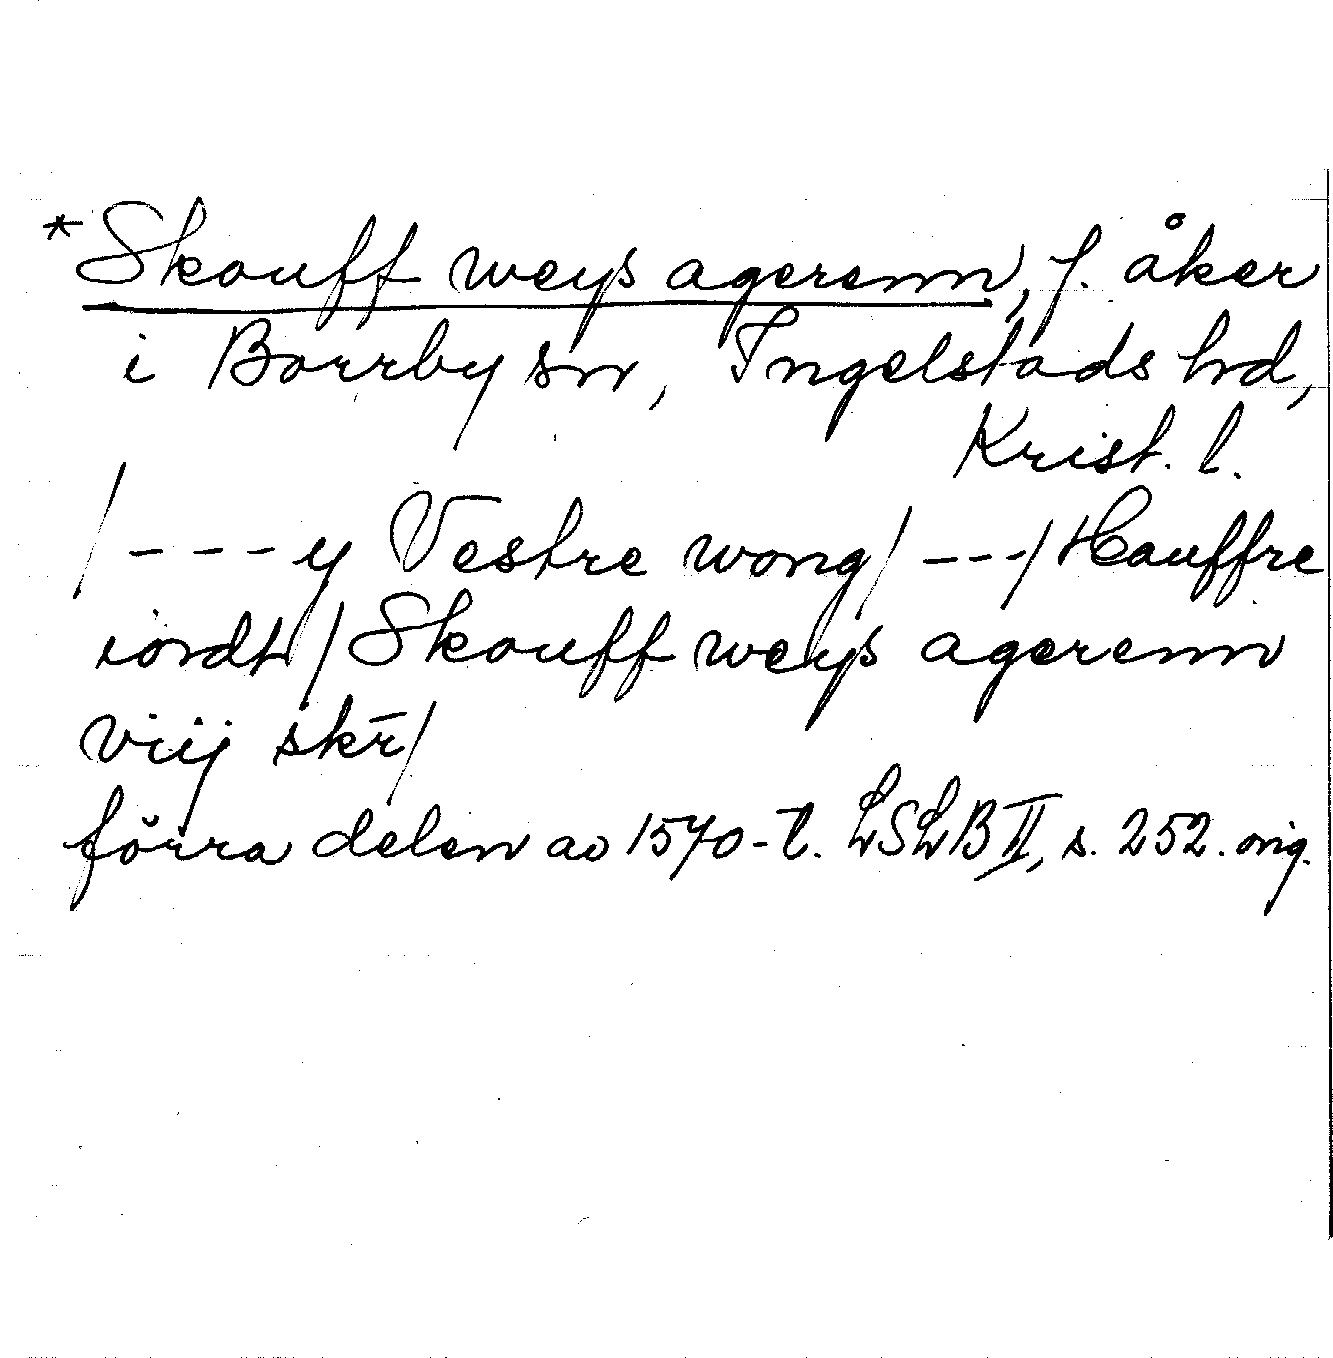 *Skouff weys agerenn, f. åker
i Borrby sn, Ingelstads hd,
Krist. l.
/ - - - y Vestre wong / - - - / Hauffre
iordt / Skouff weys agerenn
viij skr̄ /
förra delen av 1570-t. LSLB II, s. 252. orig.